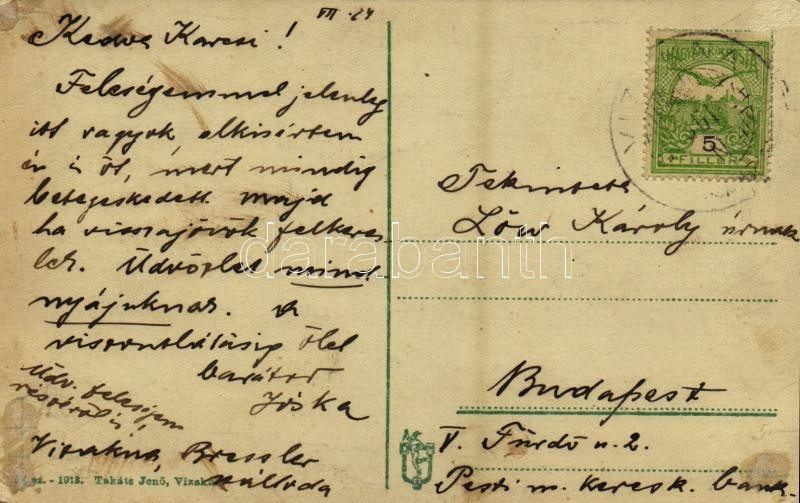 VII. 24
Kedves Karcsi!
Feleségemmel jelenleg
itt vagyok elkisértem
én is őt, mert mindig
betegeskedett majd
ha visszajövök felkeres-
lek. Üdvözlet mind-
nyájuknak. A
viszontlátásig ölel
barátod
Jóska
Üdv. feleségem
részéről is,
Vizakna, Bressler
szálloda
1913. Takáts Jenő, Vizakna
MAGYAR KIR. POSTA
5
FILLÉR
VIZAKNA
Tekintetes
Löw Károly úrnak
Budapest
V. Fürdő u. 2.
Pesti m. keresk. bank.
darabanth